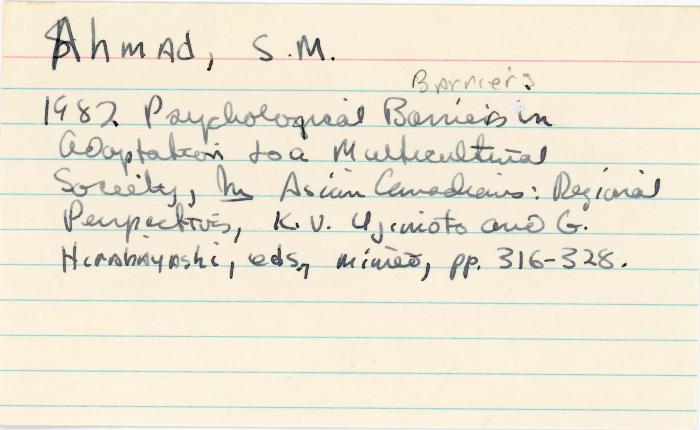 Ahmad, S.M.
Barriers
1982 Psychological Barriers in
Adaptation to a Multicultural
Society, In Asian Canadians: Regional
Perspectives, K.V. Ujimoto and G.
Hirabayashi, eds., mimeo, pp. 316-328.